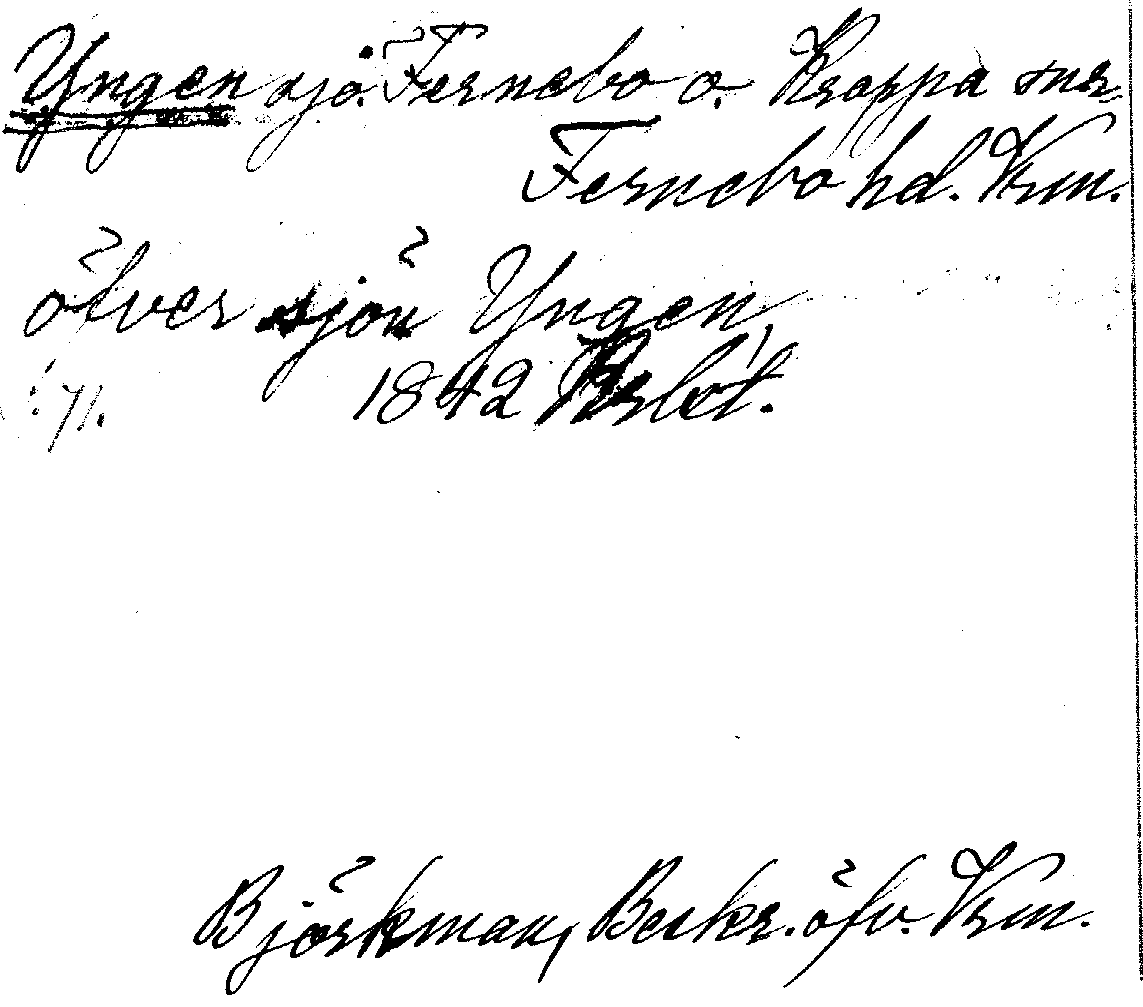 Yngen sjö. Fernebo o. Kroppa snr
Fernebo hd. Vrm.
öfver sjön Yngen
:71. 1842
Björkman, Beskr. öfv. Vrm.